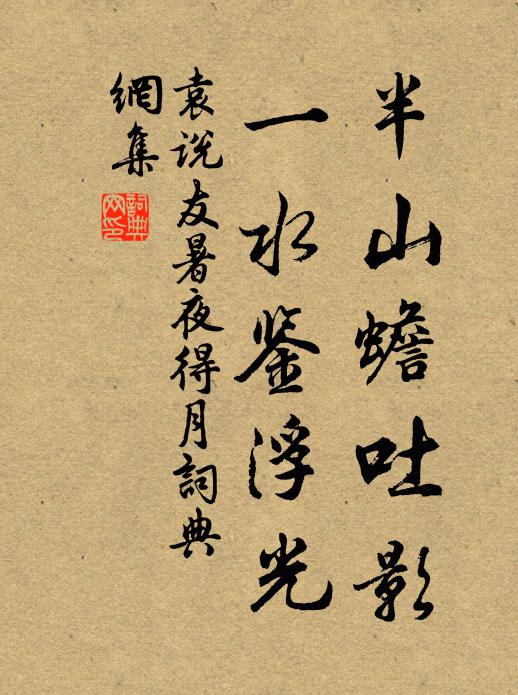 半山蟾吐影
一水鉴浮光
袁说友暑夜得月詞典
網集
詞典
网印